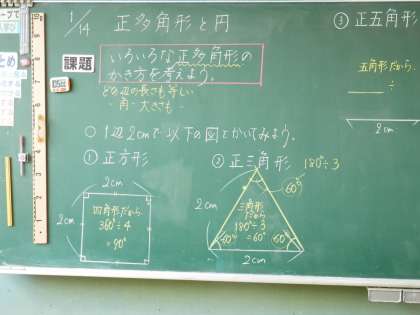 1/14 正多角形と円
課題
いろいろな正多角形の
かき方を考えよう。
どの辺の長さも等しい
・角・大きさも・
○1辺2cmで以下の図をかいてみよう。
①正方形
2cm
2cm
四角形だから
360°÷4
=90°
②正三角形
180°÷3
60°
2cm
三角形
だから
180°÷3
=60°
60°
60°
2cm
③正五角形
五角形だから
÷
2cm